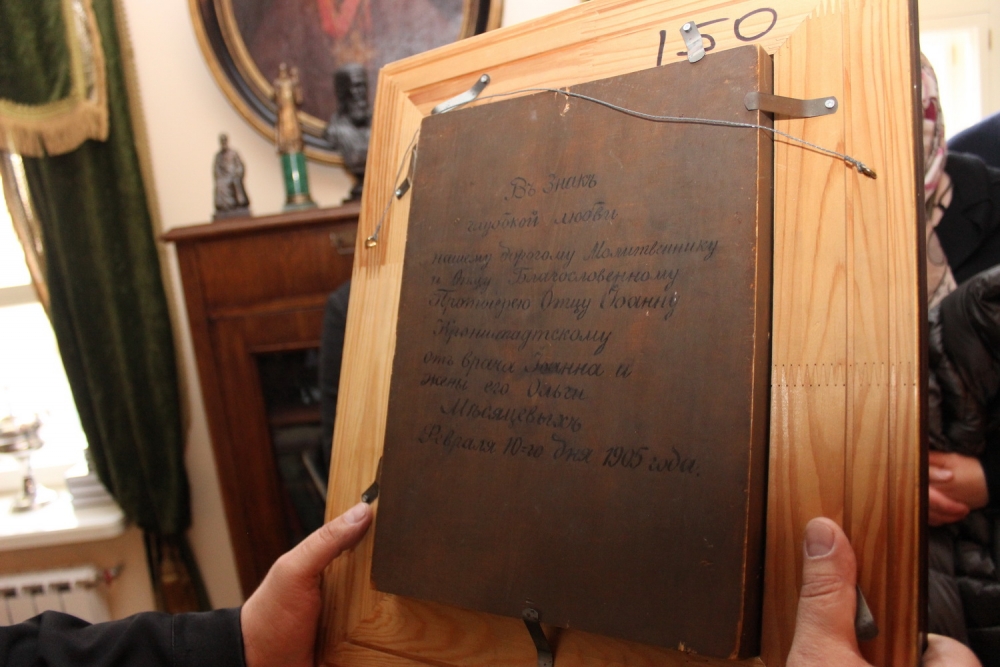 150
Въ знакъ
глубокой любви
нашему дорогому Молитвеннику
и Отцу Благословенному
Протоіерею Отцу Іоанну
Кронштадтскому
отъ врача Іоанна и
жены его Ольги
Мѣсяцевыхъ
Февраля 10=го дня 1905 года.